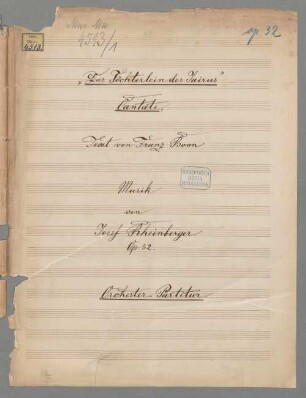 Mus. Ms.
4513/1
4513
op 32
„Das Töchterlein des Jairus"
Cantate.
Text von Franz Bonn
Musik
von
Josef Rheinberger
Op. 32.
Orchester-Partitur
BIBLIOTHECA
REGIA
MONACENSIS